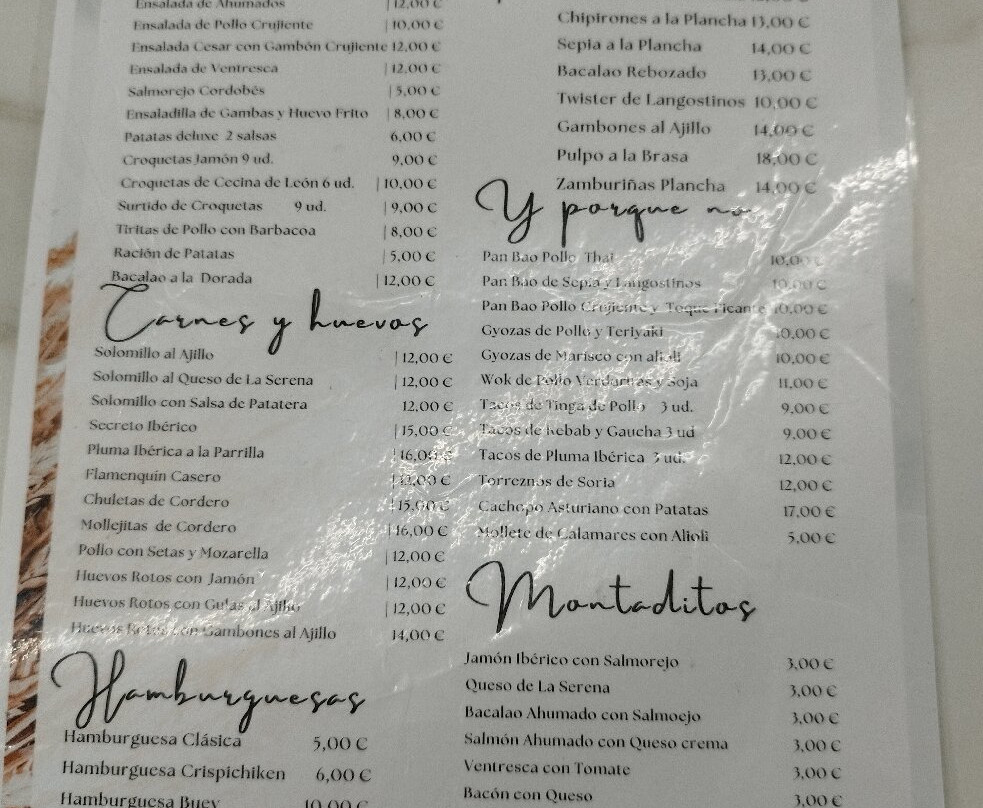 Ensalada de Ahumados | 12,00 €
Ensalada de Pollo Crujiente | 10,00 €
Ensalada Cesar con Gambón Crujiente 12,00 €
Ensalada de Ventresca | 12,00 €
Salmorejo Cordobés | 5,00 €
Ensaladilla de Gambas y Huevo Frito | 8,00 €
Patatas deluxe 2 salsas 6,00 €
Croquetas Jamón 9 ud. 9,00 €
Croquetas de Cecina de León 6 ud. | 10,00 €
Surtido de Croquetas 9 ud. | 9,00 €
Tiritas de Pollo con Barbacoa | 8,00 €
Ración de Patatas | 5,00 €
Bacalao a la Dorada | 12,00 €
Carnes y huevos
Solomillo al Ajillo | 12,00 €
Solomillo al Queso de La Serena | 12,00 €
Solomillo con Salsa de Patatera 12,00 €
Secreto Ibérico | 15,00 €
Pluma Ibérica a la Parrilla | 16,00 €
Flamenquín Casero
Chuletas de Cordero | 15,00 €
Mollejitas de Cordero | 16,00 €
Pollo con Setas y Mozarella | 12,00 €
Huevos Rotos con Jamón | 12,00 €
Huevos Rotos con Gulas al Ajillo | 12,00 €
Huevos Rotos con Gambones al Ajillo 14,00 €
Hamburguesas
Hamburguesa Clásica 5,00 €
Hamburguesa Crispichiken 6,00 €
Hamburguesa Buey 10,00 €
Chipirones a la Plancha 13,00 €
Sepia a la Plancha 14,00 €
Bacalao Rebozado 13,00 €
Twister de Langostinos 10,00 €
Gambones al Ajillo 14,00 €
Pulpo a la Brasa 18,00 €
Zamburiñas Plancha 14,00 €
Y porque no
Pan Bao Pollo Thai 10,00 €
Pan Bao de Sepia y Langostinos 10,00 €
Pan Bao Pollo Crujiente y Toque Picante 10,00 €
Gyozas de Pollo y Teriyaki 10,00 €
Gyozas de Marisco con alioli 10,00 €
Wok de Pollo Verduritas y Soja 11,00 €
Tacos de Tinga de Pollo 3 ud. 9,00 €
Tacos de Kebab y Gaucha 3 ud 9,00 €
Tacos de Pluma Ibérica 3 ud. 12,00 €
Torreznos de Soria 12,00 €
Cachopo Asturiano con Patatas 17,00 €
Mollete de Calamares con Alioli 5,00 €
Montaditos
Jamón Ibérico con Salmorejo 3,00 €
Queso de La Serena 3,00 €
Bacalao Ahumado con Salmoejo 3,00 €
Salmón Ahumado con Queso crema 3,00 €
Ventresca con Tomate 3,00 €
Bacón con Queso 3,00 €